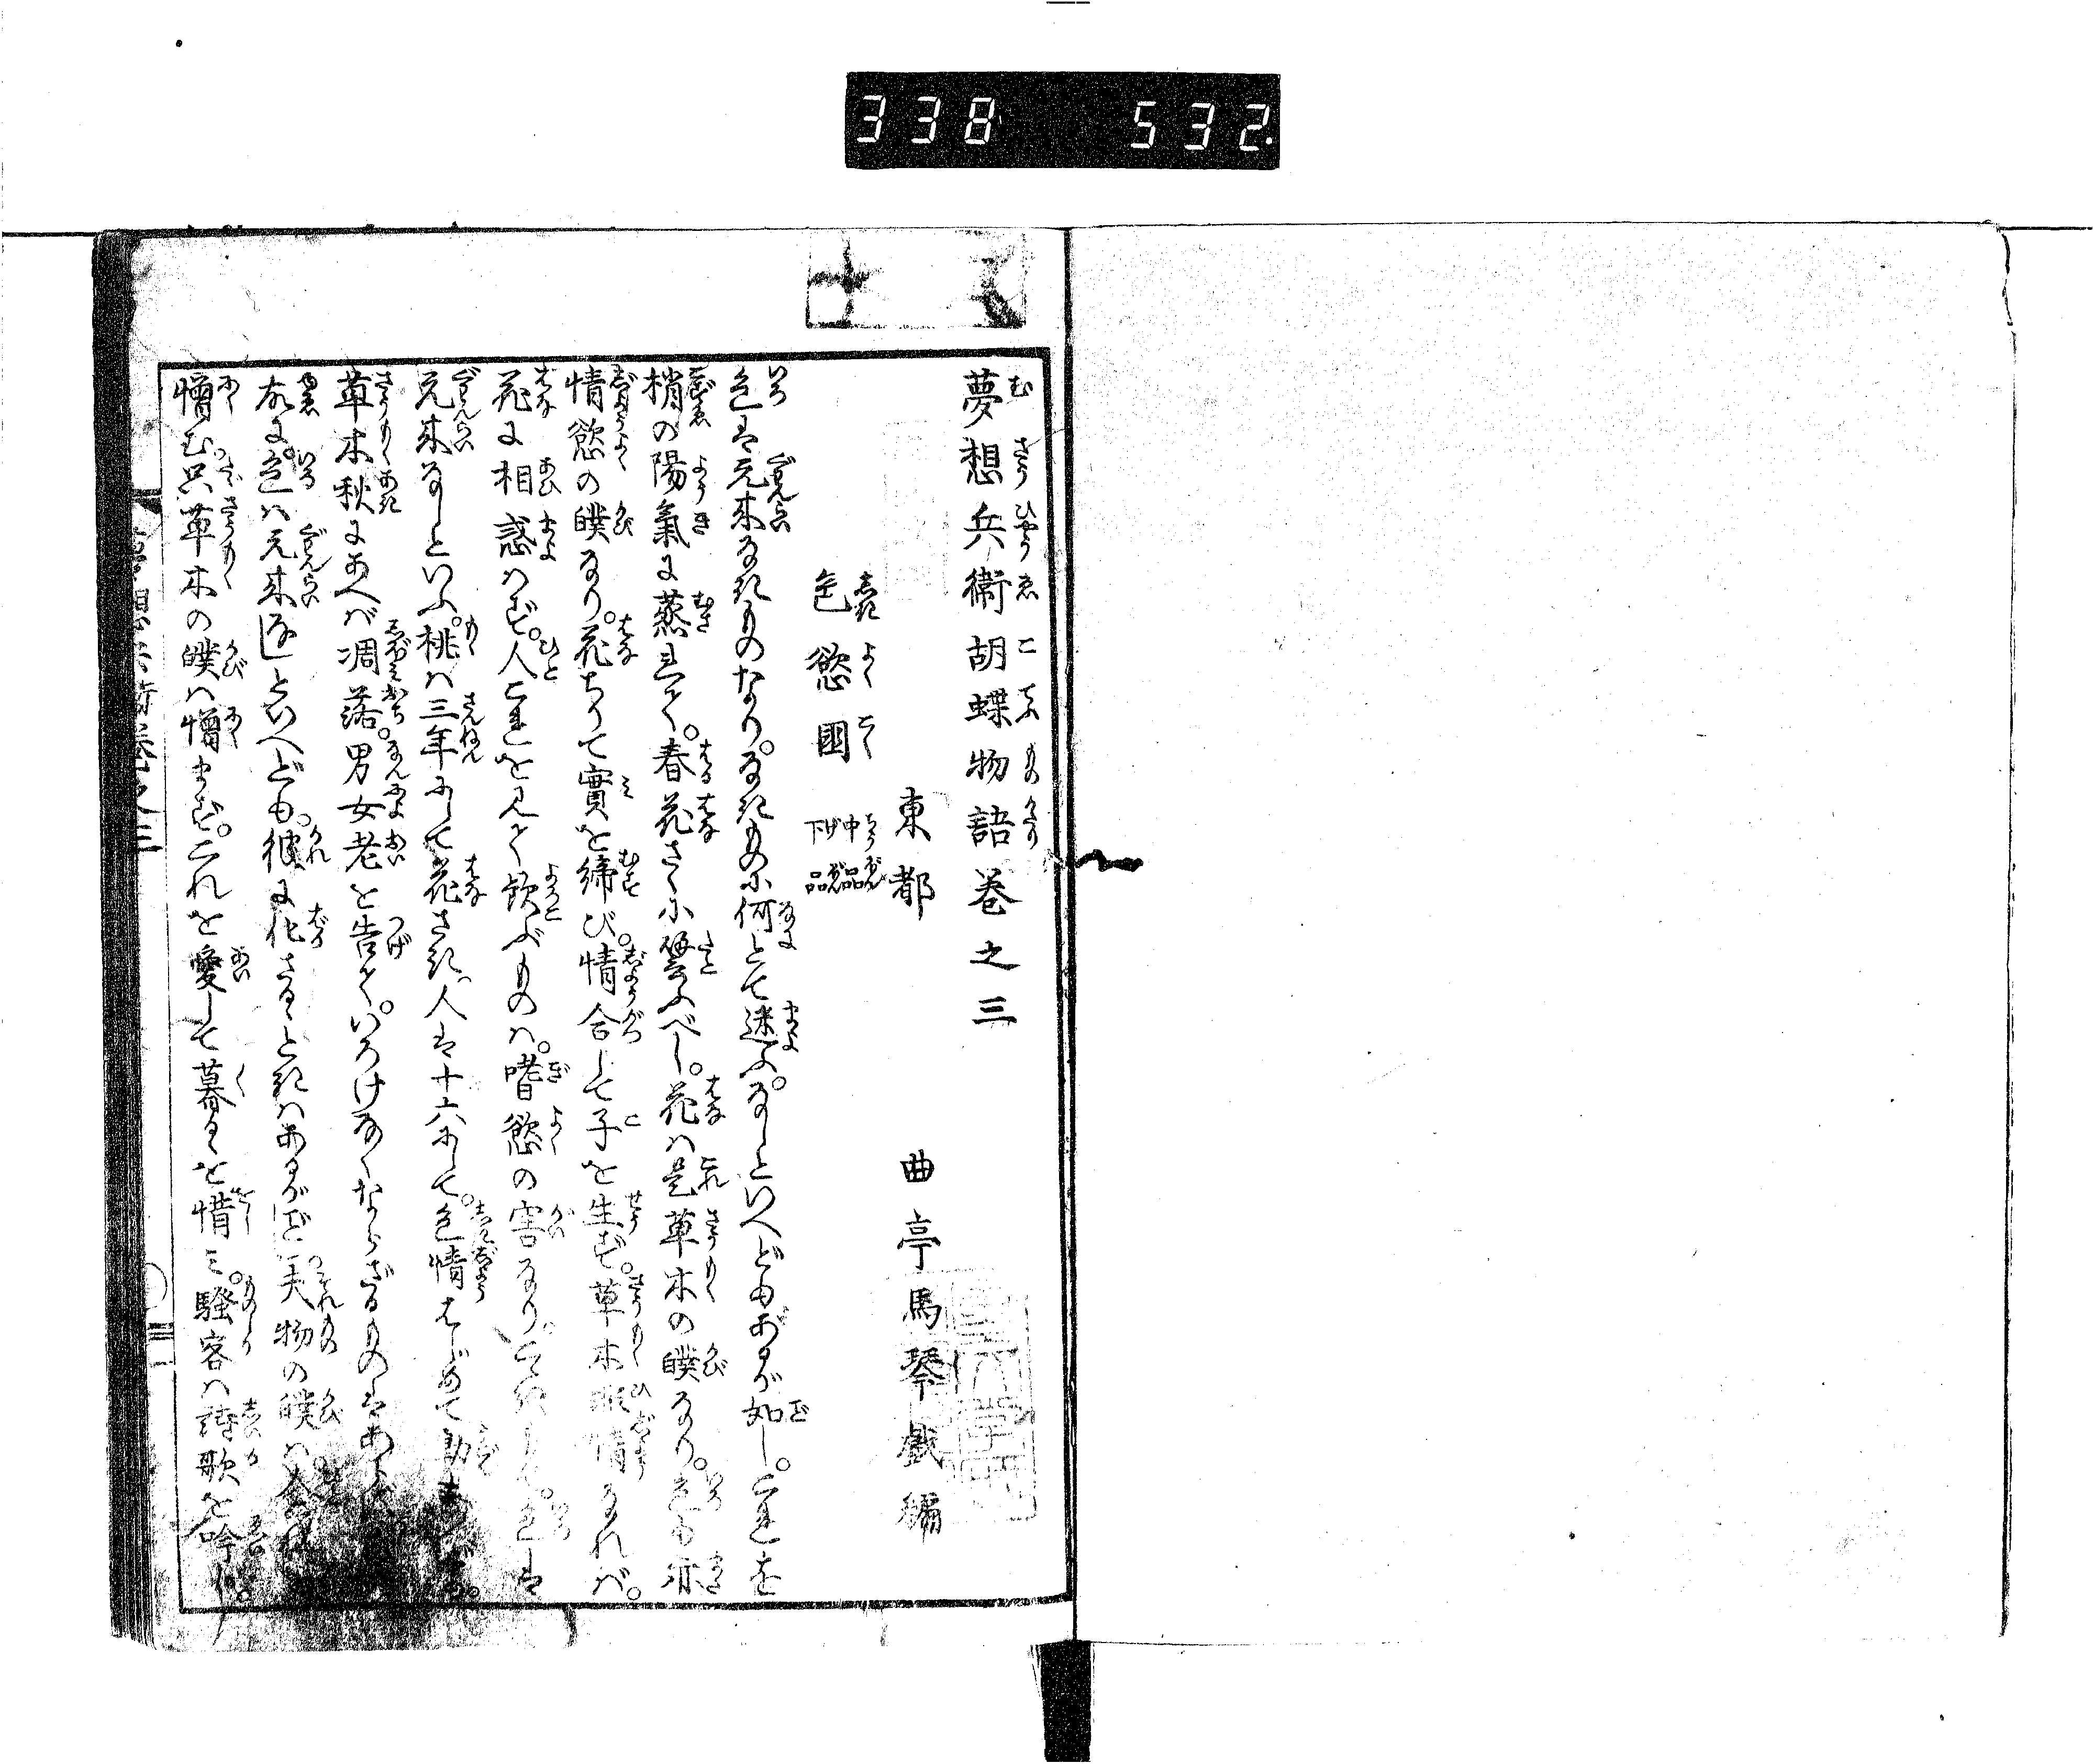 338 532
夢想兵衛胡蝶物語巻之三
東都 曲亭馬琴戯編
色慾國 中品 下品
色は元来なきものなり。なきものに何とて迷ふ。なしといへどもあるが如し。これを
梢の陽氣に蒸れて。春花さくに譬ふべし。花ハ是草木の皥なり。色も亦
情慾の皥なり。花ちりて實を締び。情合して子を生ず。草木ハ情なれバ。
花に相惑ハず。人これを見て歓ぶものハ。嗜慾の害なり。 色は
元来なしといふ。桃ハ三年にして花さき、人は十六にして。色情はじめて動
草木秋にあへバ凋落。男女老を告て。いろけなくならざるものはあら
故に。色ハ元来なしといへども。彼に化さるゝときハあるがごとし。夫物の皥ハ人
憎む。只草木の皥ハ憎まず。これを愛して暮るゝを惜ミ。騒客ハ詩歌を吟じ。